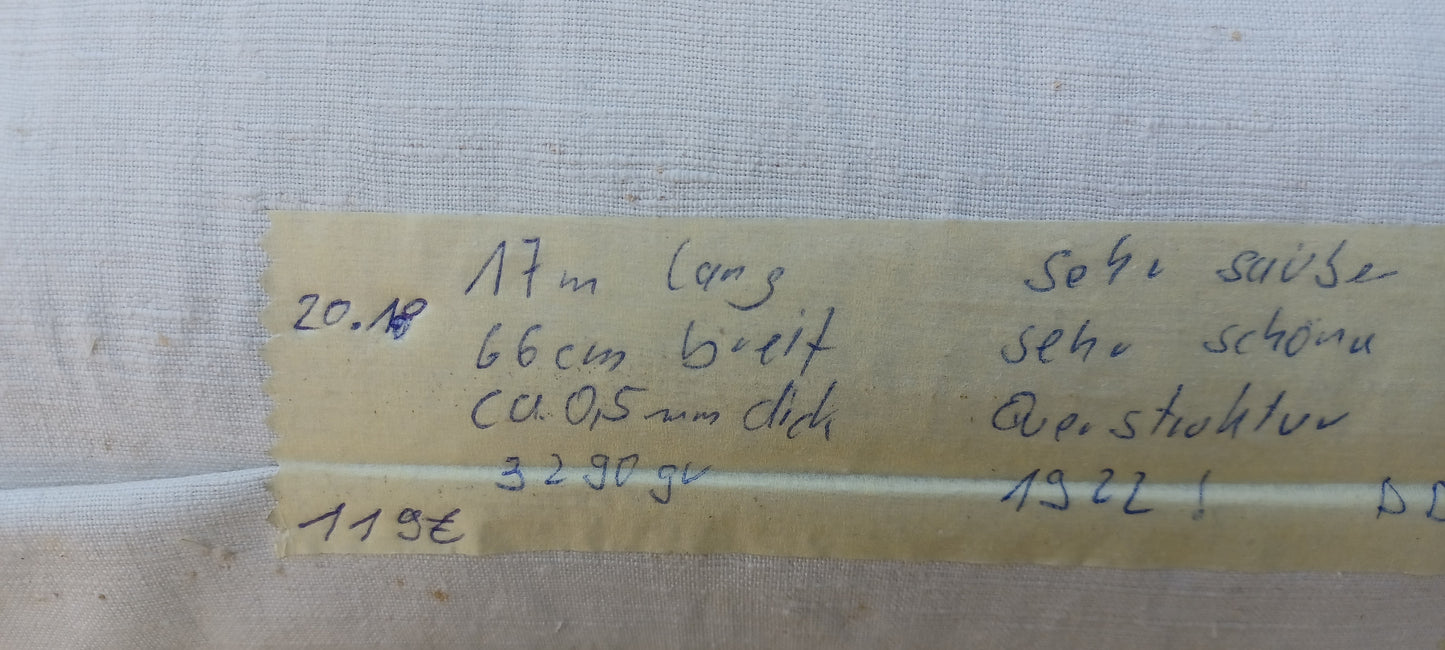 17m lang sehr sauber
20.18
66cm breit sehr schöne
ca. 0,5mm dick Querstruktur
3290gr 1922! DD
119€